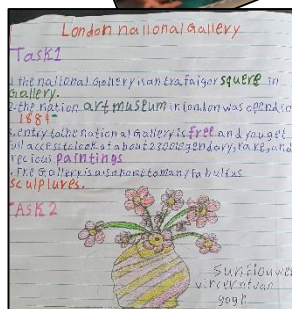 London national Gallery
Task1
1. the national Gallery is on trafalgor square in
Gallery.
2. the nation art museum in london was opend in
1884
3. entry to the national Gallery is free and you get
full access to look at about 2300 legendary, rare, and
precious paintings
4. The Gallery is also home to many fabulus
sculptures.
TASK 2
sunflower
vincent van
gogh